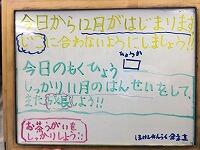 今日から12月がはじまります
に合わないようにしましょう!!
今日のもくひょう
ひょうか
しっかり11月のはんせいをして、
また 長しよう!!
お茶うがいを
しっかりしよう!!